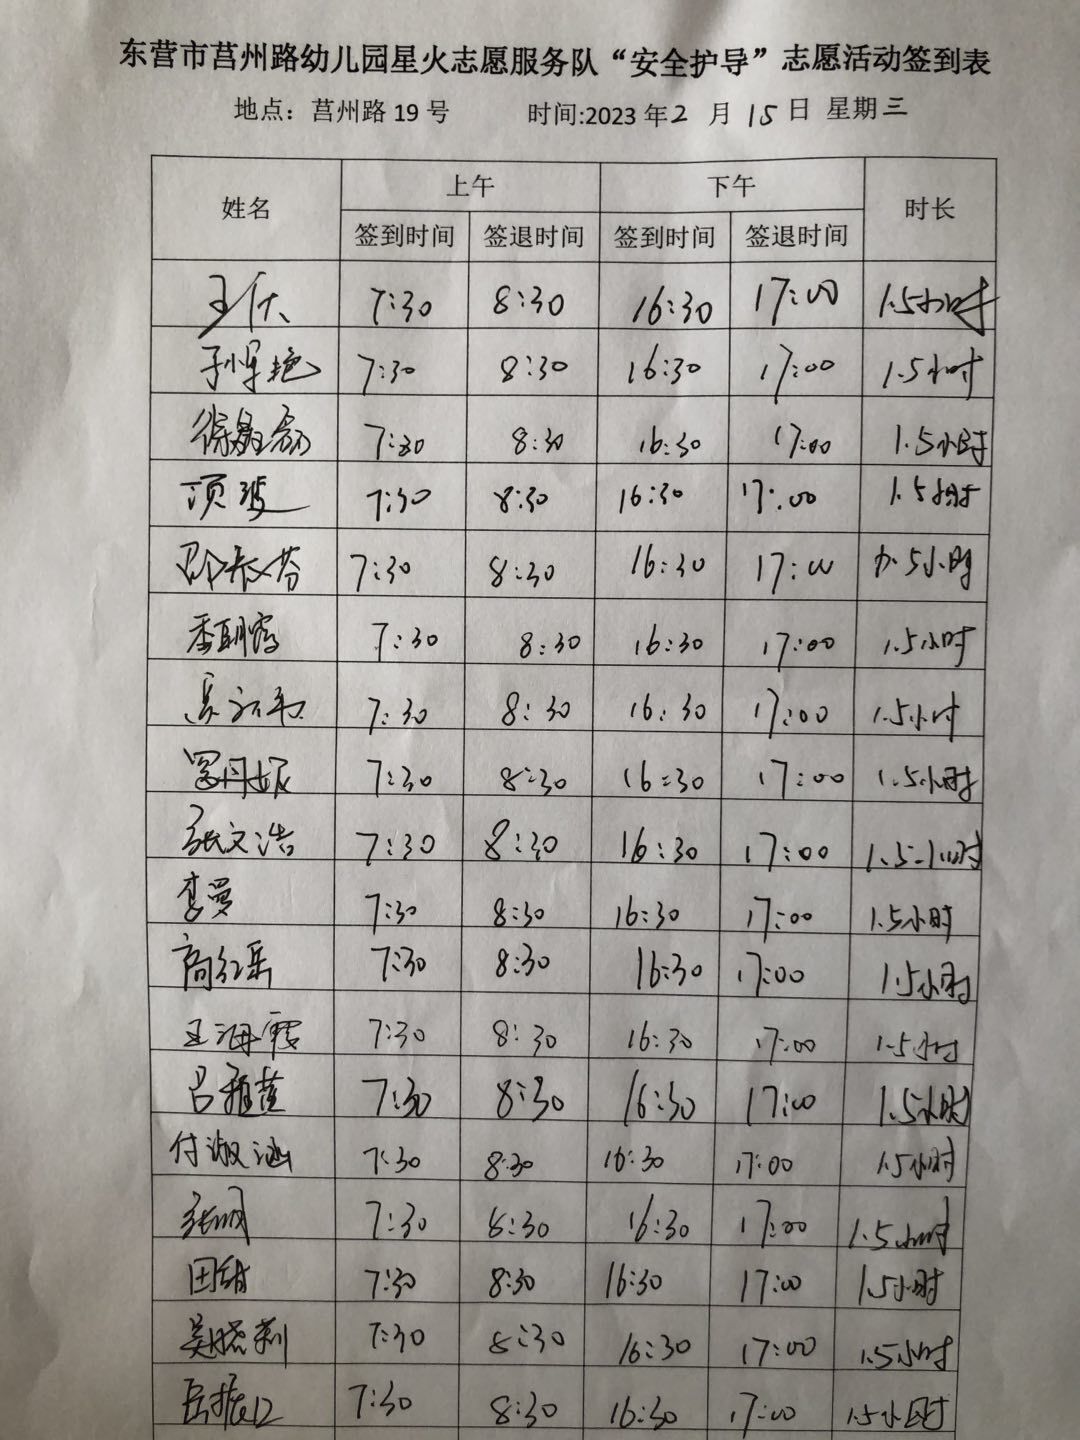 东营市莒州路幼儿园星火志愿服务队“安全护导”志愿活动签到表
地点：莒州路19号 时间:2023年2月15日 星期三
姓名 上午 下午 时长
签到时间 签退时间 签到时间 签退时间
7:30 8:30 16:30 17:00 1.5小时
7:30 8:30 16:30 17:00 1.5小时
7:30 8:30 16:30 17:00 1.5小时
项波 7:30 8:30 16:30 17:00 1.5小时
7:30 8:30 16:30 17:00 .5小时
7:30 8:30 16:30 17:00 1.5小时
7:30 8:30 16:30 17:00 1.5小时
7:30 8:30 16:30 17:00 1.5小时
张文浩 7:30 8:30 16:30 17:00 1.5小时
李曼 7:30 8:30 16:30 17:00 1.5小时
7:30 8:30 16:30 17:00 1.5小时
王海霞 7:30 8:30 16:30 17:00 1.5小时
吕雅萱 7:30 8:30 16:30 17:00 1.5小时
付淑涵 7:30 8:30 16:30 17:00 1.5小时
7:30 8:30 16:30 17:00 1.5小时
7:30 8:30 16:30 17:00 1.5小时
7:30 8:30 16:30 17:00 1.5小时
7:30 8:30 16:30 17:00 1.5小时